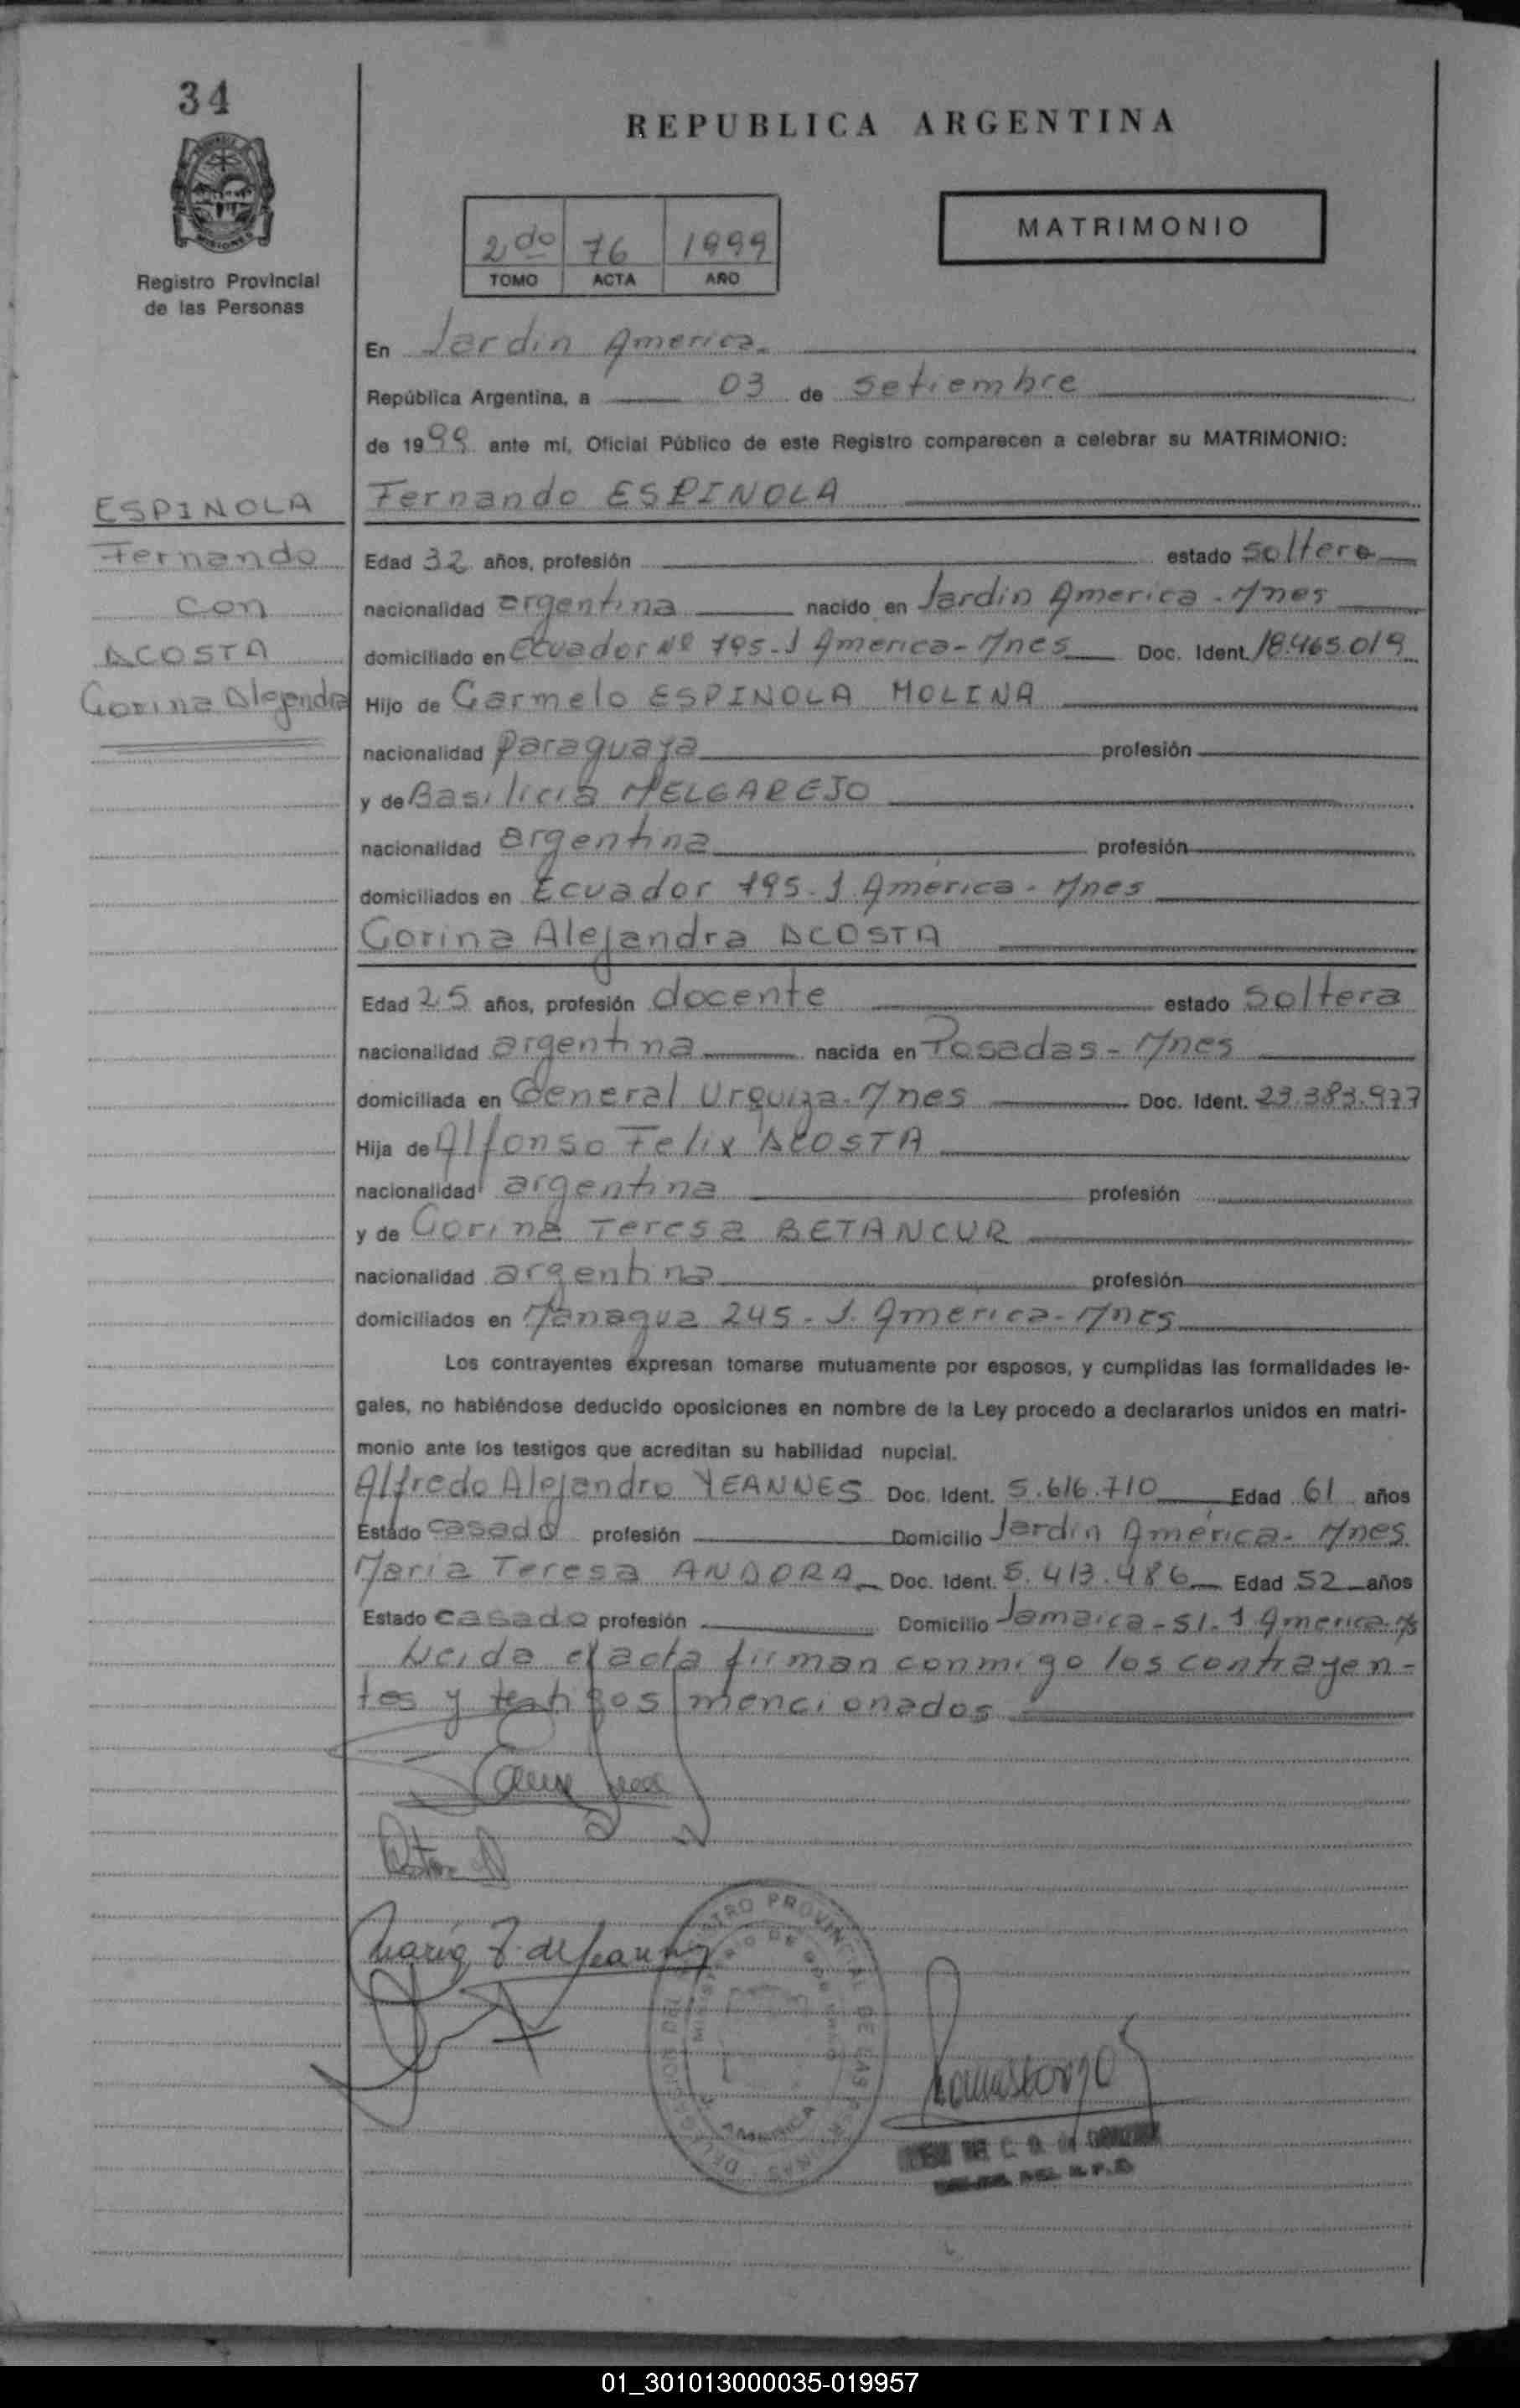 34
REPUBLICA ARGENTINA
MISIONES
Registro Provincial
de las Personas
2do 76 1999
TOMO ACTA AÑO
MATRIMONIO
En Jardin America.
República Argentina, a 03 de setiembre
de 1999 ante mí, Oficial Público de este Registro comparecen a celebrar su MATRIMONIO:
Fernando ESPINOLA
ESPINOLA
Fernando
con
ACOSTA
Corina Alejandra
Edad 32 años, profesión estado soltero
nacionalidad argentina nacido en Jardin America - Mnes
domiciliado en Ecuador Nº 795 - J America - Mnes Doc. Ident. 18.465.019
Hijo de Carmelo ESPINOLA MOLINA
nacionalidad paraguaya profesión
y de Basilicia MELGAREJO
nacionalidad argentina profesión
domiciliados en Ecuador 795 - J. América - Mnes
Corina Alejandra ACOSTA
Edad 25 años, profesión docente estado soltera
nacionalidad argentina nacida en Posadas - Mnes
domiciliada en General Urquiza - Mnes Doc. Ident. 23.383.977
Hija de Alfonso Felix ACOSTA
nacionalidad argentina profesión
y de Corina Teresa BETANCUR
nacionalidad argentina profesión
domiciliados en Managua 245 - J. America - Mnes
Los contrayentes expresan tomarse mutuamente por esposos, y cumplidas las formalidades le-
gales, no habiéndose deducido oposiciones en nombre de la Ley procedo a declararlos unidos en matri-
monio ante los testigos que acreditan su habilidad nupcial.
Alfredo Alejandro YEANNES Doc. Ident. 5.616.710 Edad 61 años
Estado casado profesión Domicilio Jardin América - Mnes
Maria Teresa ANDORA Doc. Ident. 5.413.486 Edad 52 años
Estado casado profesión Domicilio Jamaica - S/. J America - Ms
Leida el acta firman conmigo los contrayen-
tes y testigos mencionados
Maria T. de Jeannes
REGISTRO PROVINCIAL DE LAS PERSONAS
DELEGACION
MINISTERIO DE GOBIERNO
AMERICA
01_301013000035-019957